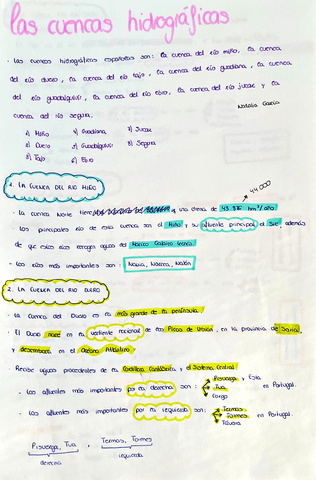 Las cuencas hidrográficas
· Las cuencas hidrográficas españolas son: la cuenca del río miño, la cuenca
del río duero, la cuenca del río tajo, la cuenca del río guadiana, la cuenca
del río guadalquivir, la cuenca del río ebro, la cuenca del río jucar y la
cuenca del río segura.
Natalia García
1) Miño 4) Guadiana 7) Jucar
2) Duero 5) Guadalquivir 8) Segura
3) Tajo 6) Ebro
1. LA CUENCA DEL RIO MIÑO
44.000
· La cuenca Norte tiene y una clema de hm³/año
· Los principales río de esta cuenca son el Miño y su afluente principal el Sil, además
de que estos ríos recogen aguas del Macizo Galaico Leonés
· Los ríos más importantes son: Navia, Narcea, Nalón
2. LA CUENCA DEL RIO DUERO
· La cuenca del Duero es la más grande de la península.
· El Duero nace en la vertiente nacional de los Picos de Urbión, en la provincia de Soria,
y desemboca en el Océano Atlántico
Recibe aguas procedentes de la Cordillera Cantábrica y el Sistema Central
- Los afluentes más importantes por la derecha son: Pisuerga, y Esla
Tua en Portugal.
- Los afluentes más importantes por la izquierda son: Tormes
en Portugal.
Távora
Pisuerga, Tua, Termos, Tormes
derecha izquierda